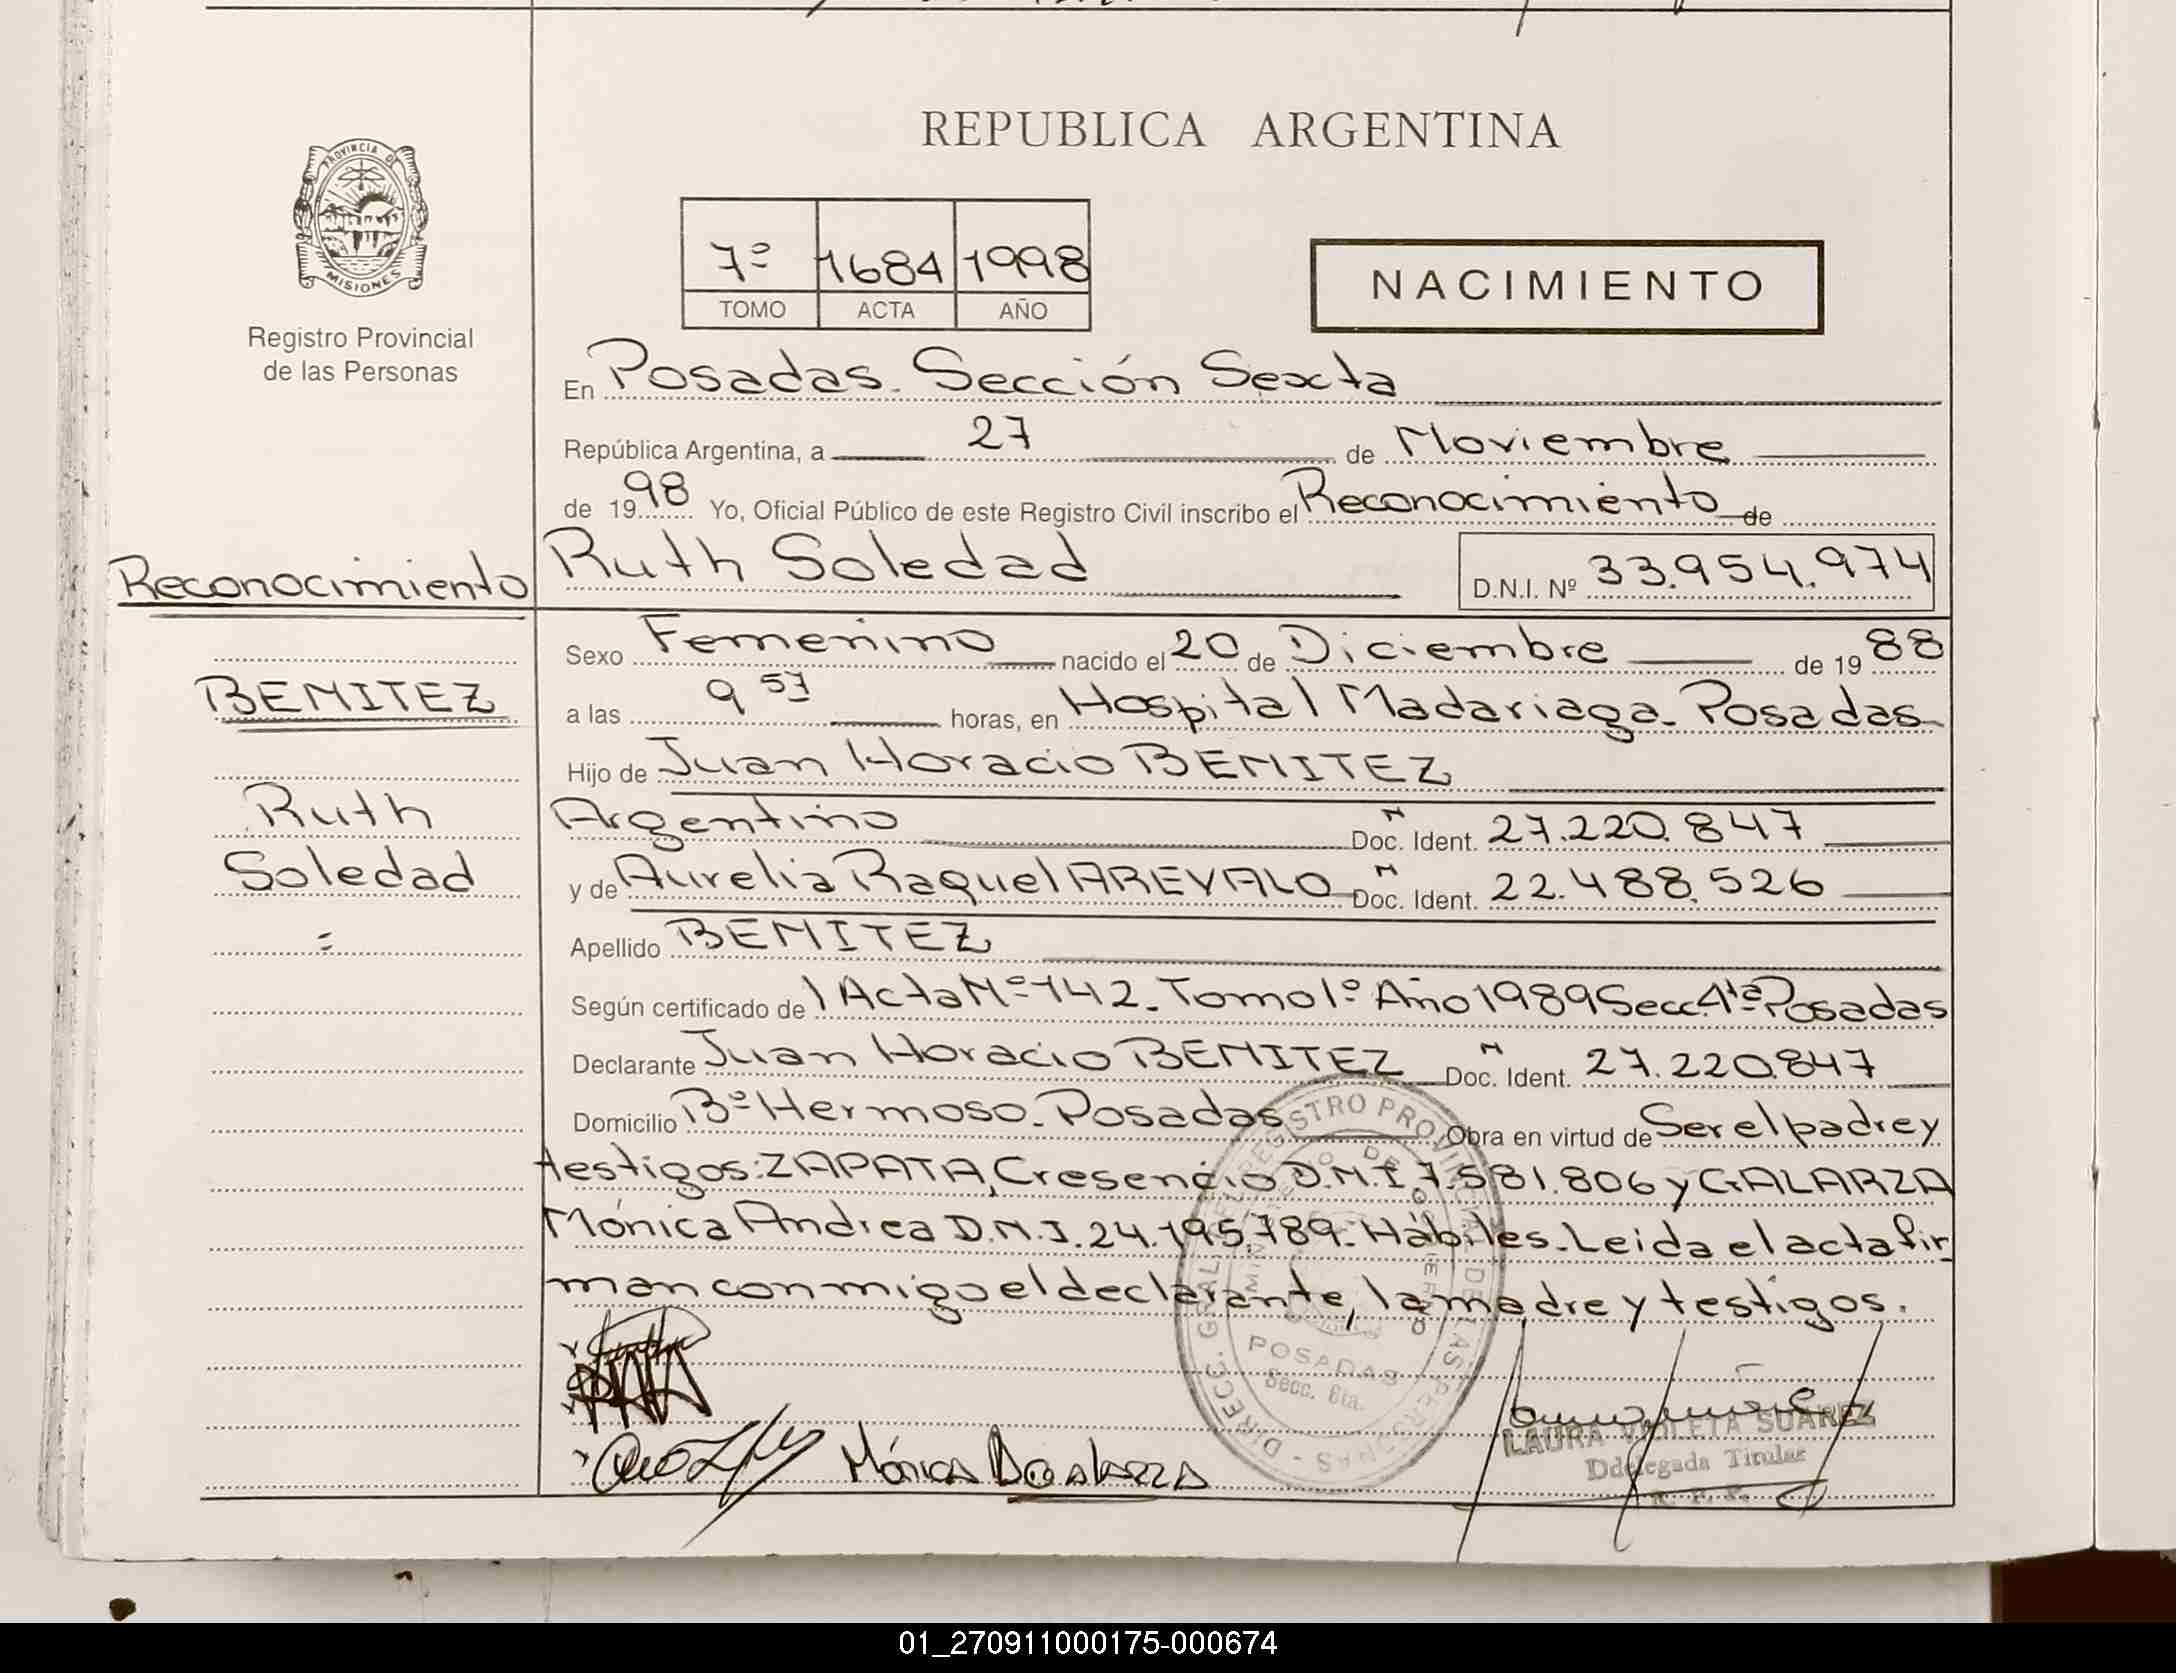 REPUBLICA ARGENTINA
PROVINCIA D
MISIONES
Registro Provincial
de las Personas
7º 1684 1998
TOMO ACTA AÑO
NACIMIENTO
En Posadas. Sección Sexta
República Argentina, a 27 de Noviembre
de 1998 Yo, Oficial Público de este Registro Civil inscribo el Reconocimiento de
Reconocimiento
Ruth Soledad D.N.I. Nº 33.954.974
Sexo Femenino nacido el 20 de Diciembre de 1988
BENITEZ
a las 9 57 horas, en Hospital Madariaga - Posadas
Hijo de Juan Horacio BENITEZ
Ruth
Argentino N Doc. Ident. 27.220.847
Soledad
y de Aurelia Raquel AREVALO N Doc. Ident. 22.488.526
Apellido BENITEZ
Según certificado de l Acta Nº 142. Tomo 1º Año 1989 Secc. 4ta Posadas
Declarante Juan Horacio BENITEZ N Doc. Ident. 27.220.847
Domicilio Bº Hermoso - Posadas Obra en virtud de Ser el padre y
testigos: ZAPATA, Cresencio D.N.I 7.581.806 y GALARZA
Mónica Andrea D.N.I. 24.195.789. Hábiles. Leida el acta fir
man conmigo el declarante, la madre y testigos.
DIRECC. GRAL. DEL REGISTRO PROVINCIAL DE LAS PERSONAS
MINISTERIO DE GOBIERNO
POSADAS
Secc. 6ta.
Mónica A Galarza
LAURA VIOLETA SUAREZ
Ddelegada Titular
R. P. P.
01_270911000175-000674